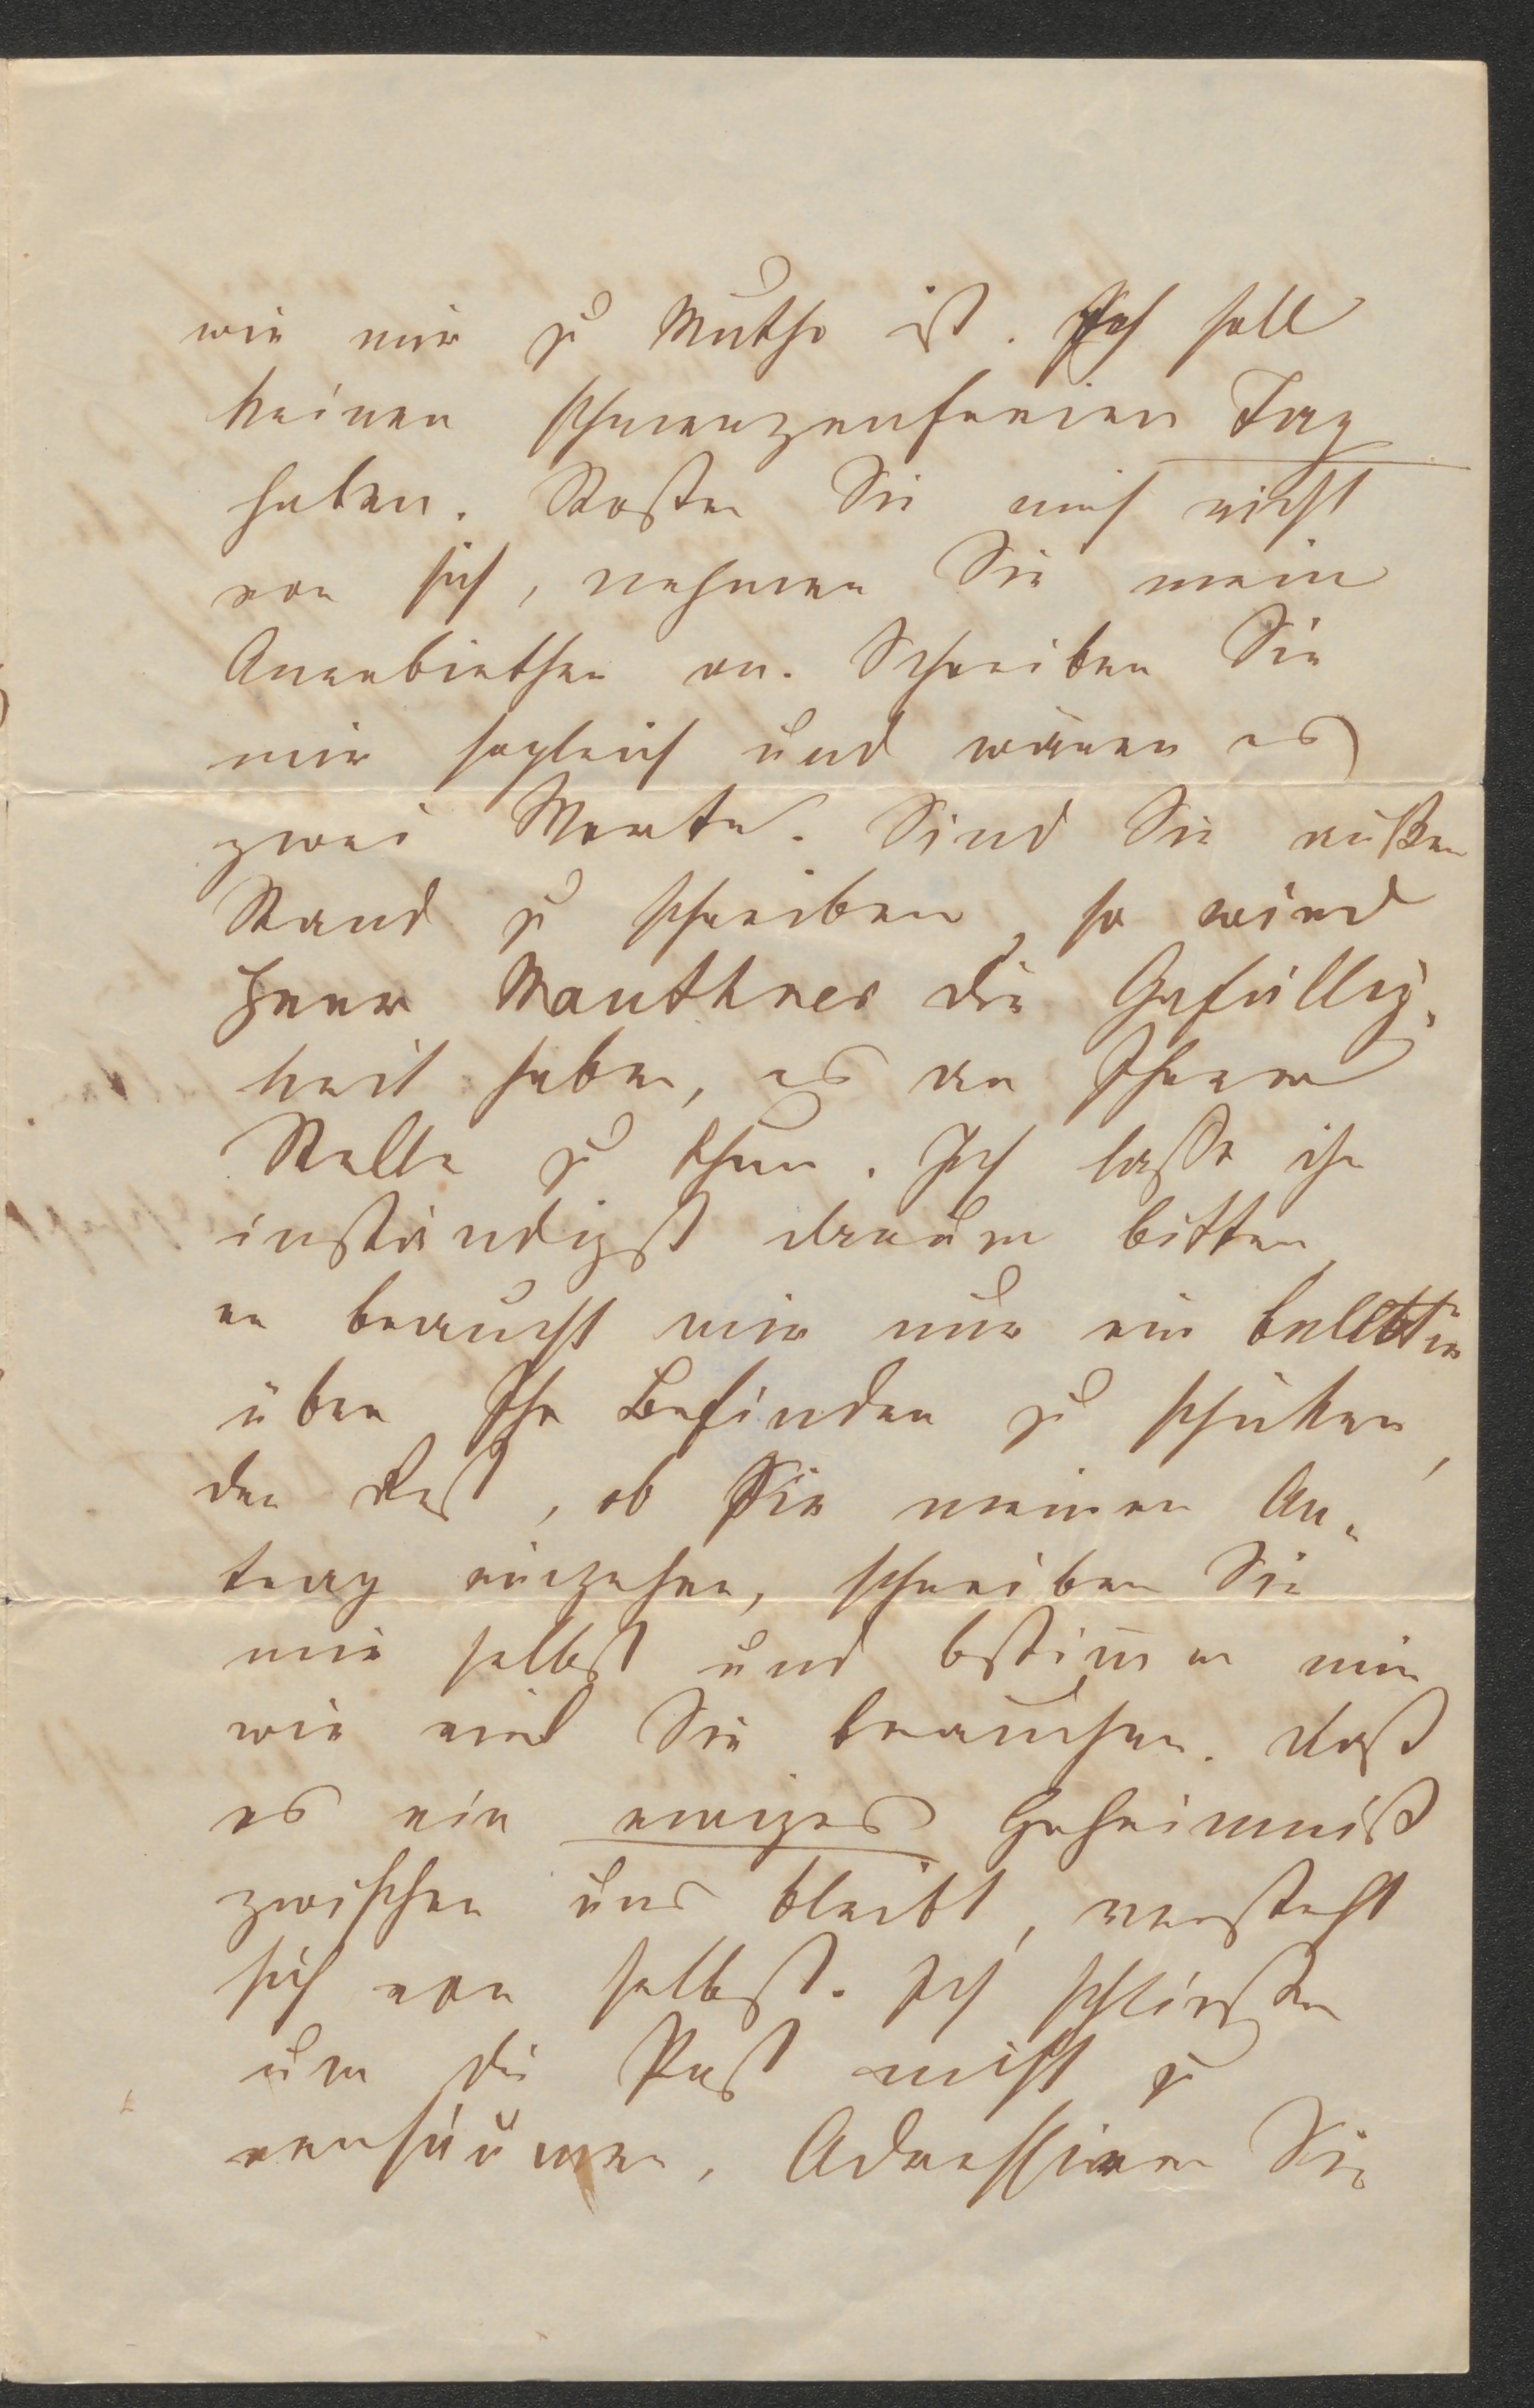 wie mir zu Muthe ist. Ich soll
keinen schmerzenfreien Tag
haben. Stoßen Sie mich nicht
von sich, nehmen Sie mein
Anerbiethen an. Schreiben Sie
mir sogleich und wären es
zwei Worte. Sind Sie außer
Stand zu schreiben, so wird
Herr Mauthner die Gefällig-
keit haben, es an Ihrer
Stelle zu thun. Ich lasse ihn
inständigst darum bitten,
er braucht mir nur ein bulletin
über Ihr Befinden zu schicken,
den Rest, ob Sie meinen An-
trag eingehen, schreiben Sie
mir selbst und bestimmen mir
wie viel Sie brauchen. Daß
es ein ewiges Geheimniß
zwischen uns bleibt, versteht
sich von selbst. Ich schließe
um die Post nicht zu
versäumen. Adressiren Sie